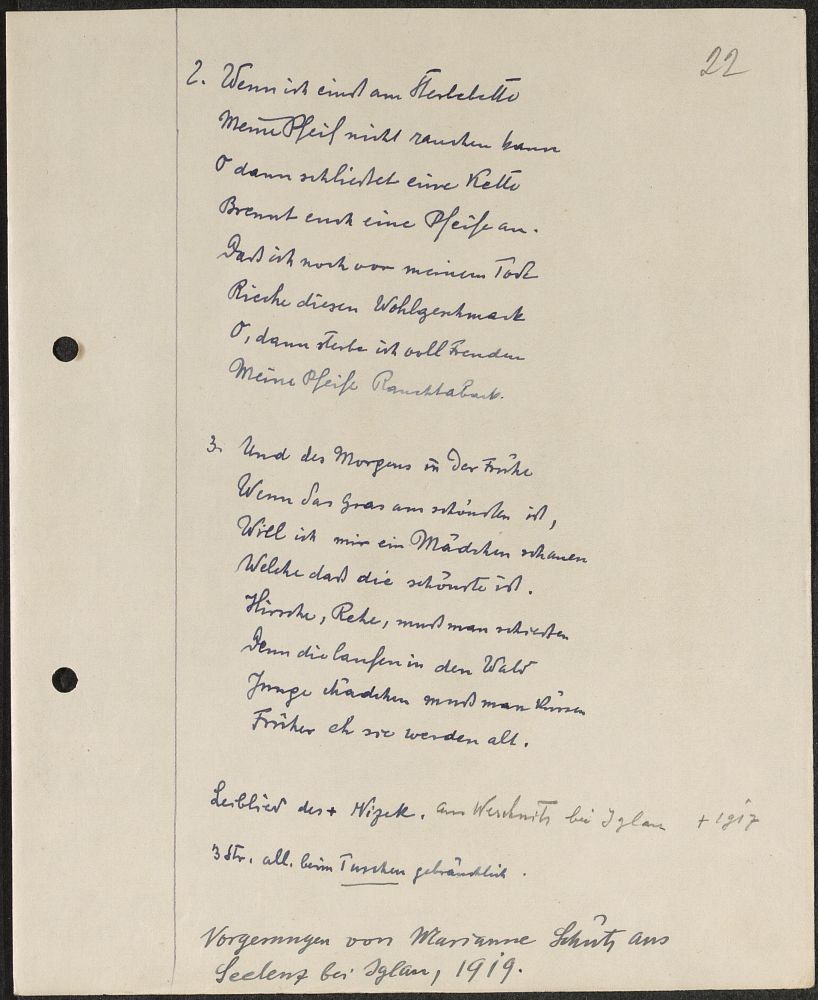 22
2. Wenn ich einst am Sterbebette
Meine Pfeif nicht rauchen kann
O dann schließet eine Kette
Brennt euch eine Pfeife an.
Daß ich noch vor meinem Tode
Rieche diesen Wohlgeschmack
O, dann sterbe ich voll Freuden
Meine Pfeife Rauchtaback.
3. Und des Morgens in der Frühe
Wenn das Gras am schönsten ist,
Will ich mir ein Mädchen schauen
Welche daß die schönste ist.
Hirsche, Rehe, muß man schießen
Denn die laufen in den Wald
Junge Mädchen muß man küssen
Früher eh sie werden alt.
Leiblied des + Nizek. aus bei Iglau + 1917
3 Str. all. beim Tuschen gebräuchlich.
Vorgesungen von Marianne Schütz aus
Seelenz bei Iglau, 1919.